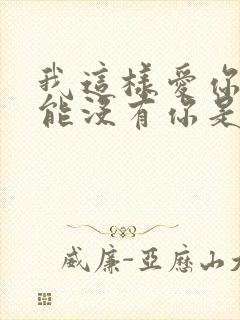 我這樣愛你
能沒有你是
威廉-亞歷山大